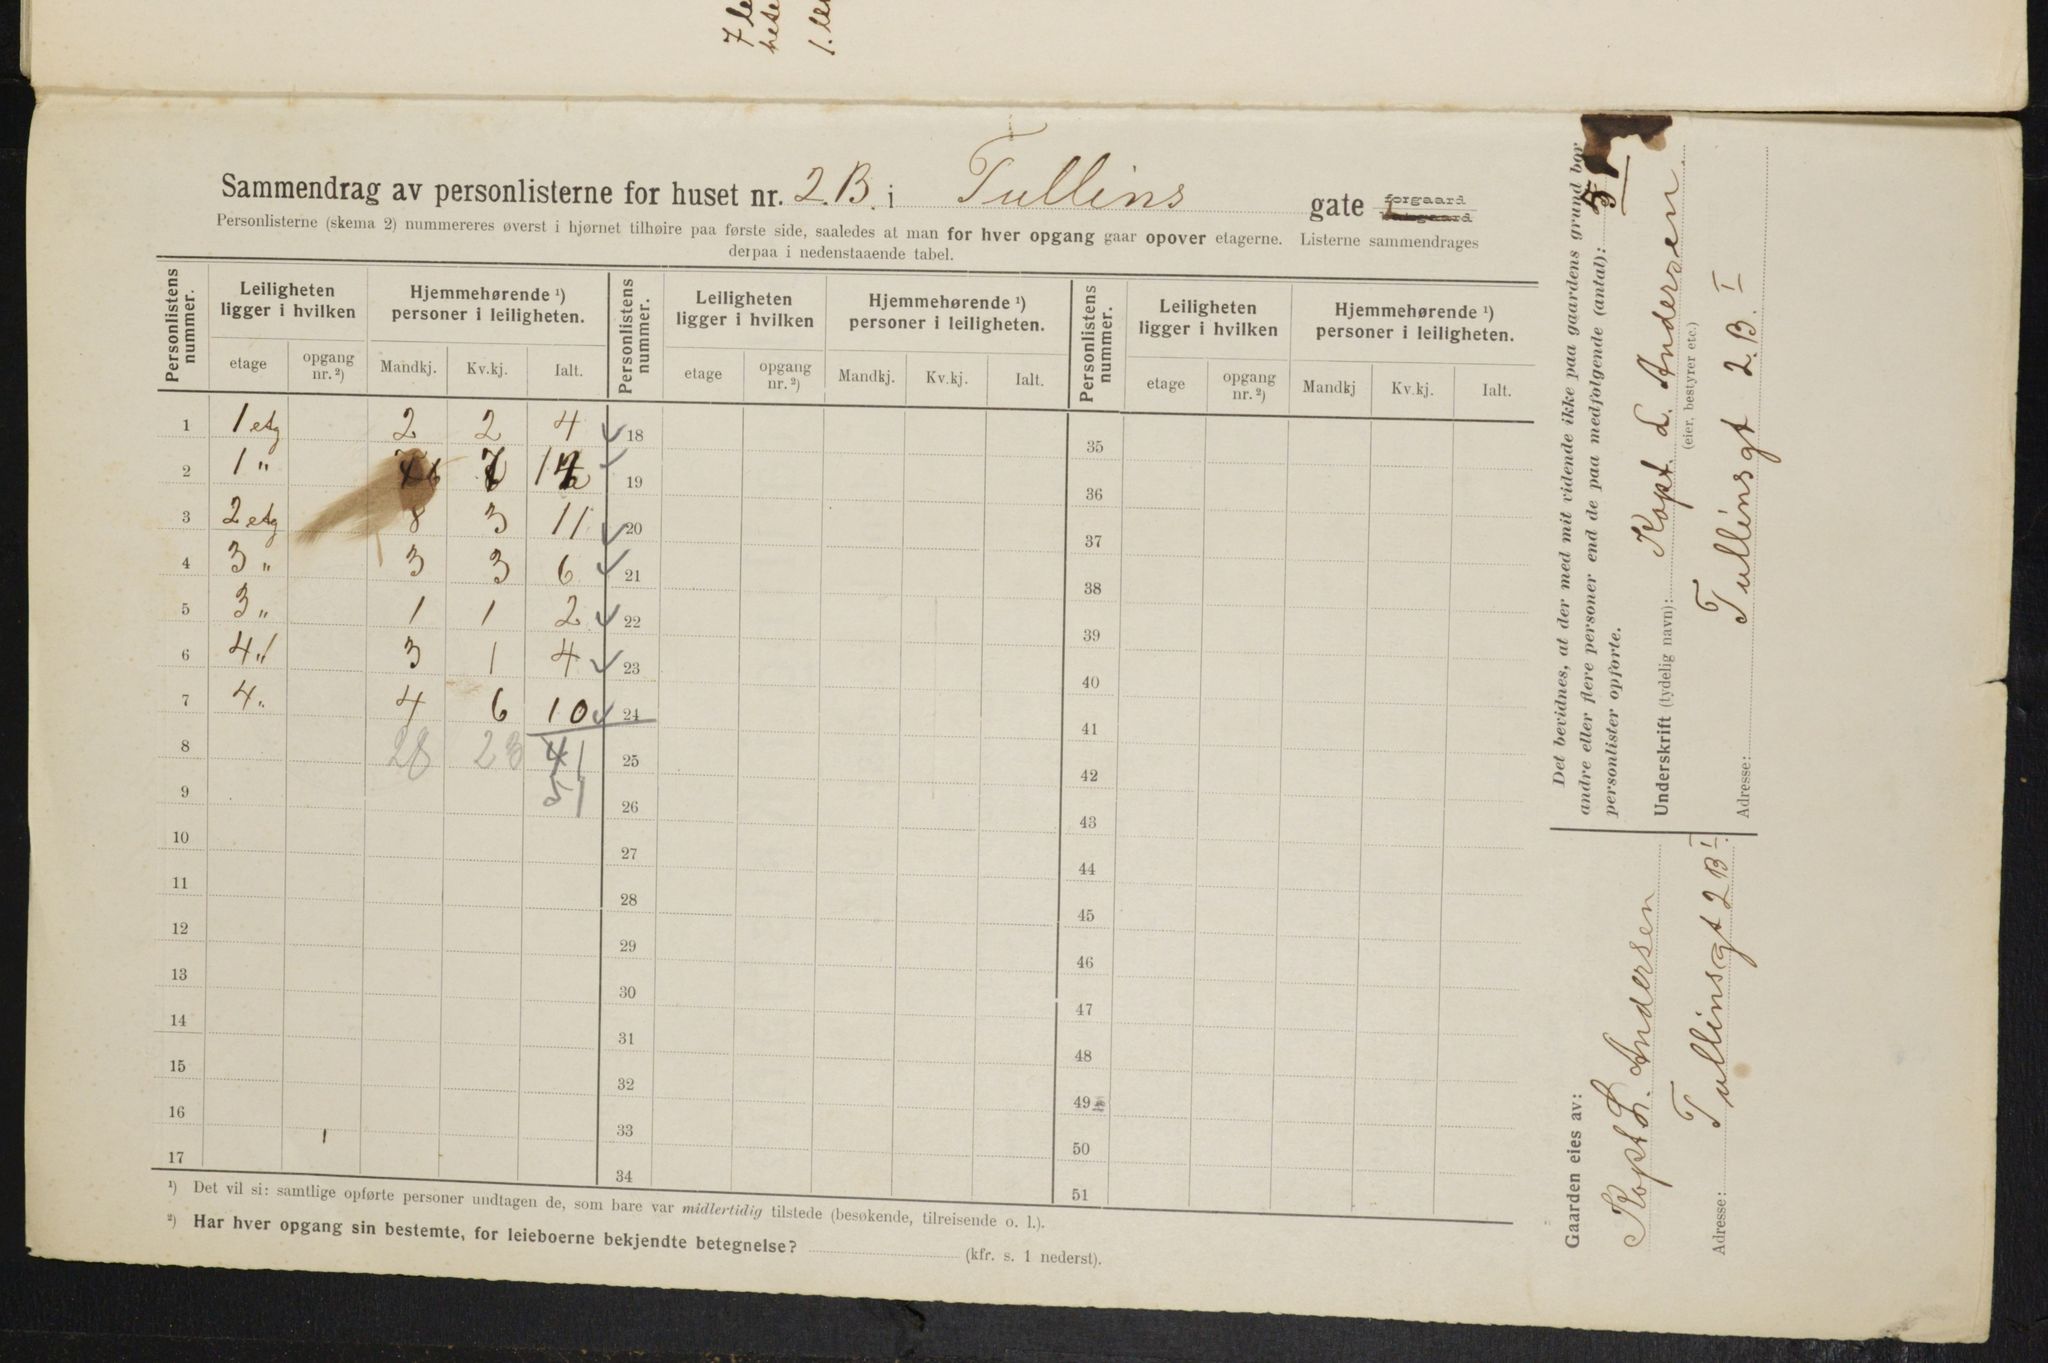 7 le
hese
1. lei
Sammendrag av personlisterne for huset nr. 2.B. i Tullins gate forgaard
Personlisterne (skema 2) nummereres øverst i hjørnet tilhøire paa første side, saaledes at man for hver opgang gaar opover etagerne. Listerne sammendrages
derpaa i nedenstaaende tabel.
Personlistens nummer. Leiligheten ligger i hvilken Hjemmehørende ¹) personer i leiligheten. Personlistens nummer. Leiligheten ligger i hvilken Hjemmehørende ¹) personer i leiligheten. Personlistens nummer. Leiligheten ligger i hvilken Hjemmehørende ¹) personer i leiligheten.
etage opgang nr. ²) Mandkj. Kv.kj. Ialt. etage opgang nr. ²) Mandkj. Kv.kj. Ialt. etage opgang nr. ²) Mandkj Kv.kj. Ialt.
1 1 etg 2 2 4 18 35
2 1 " 19 36
3 2 etg 8 3 11 20 37
4 3 " 3 3 6 21 38
5 3 " 1 1 2 22 39
6 4 " 3 1 4 23 40
7 4 " 4 6 10 24 41
8 28 23 41 25 42
9 51 26 43
10 27 44
11 28 45
12 29 46
13 30 47
14 31 48
15 32 49
16 33 50
17 34 51
¹) Det vil si: samtlige opførte personer undtagen de, som bare var midlertidig tilstede (besøkende, tilreisende o. l.).
²) Har hver opgang sin bestemte, for leieboerne bekjendte betegnelse? (kfr. s. 1 nederst).
Det bevidnes, at der med mit vidende ikke paa gaardens grund bor
andre eller flere personer end de paa medfølgende (antal): 51
personlister opførte.
Underskrift (tydelig navn): Kapt. L. Andersen
(eier, bestyrer etc.)
Adresse: Tullinsgt 2.B. I
Gaarden eies av:
Kapt L. Andersen
Adresse: Tullinsgt 2 B I